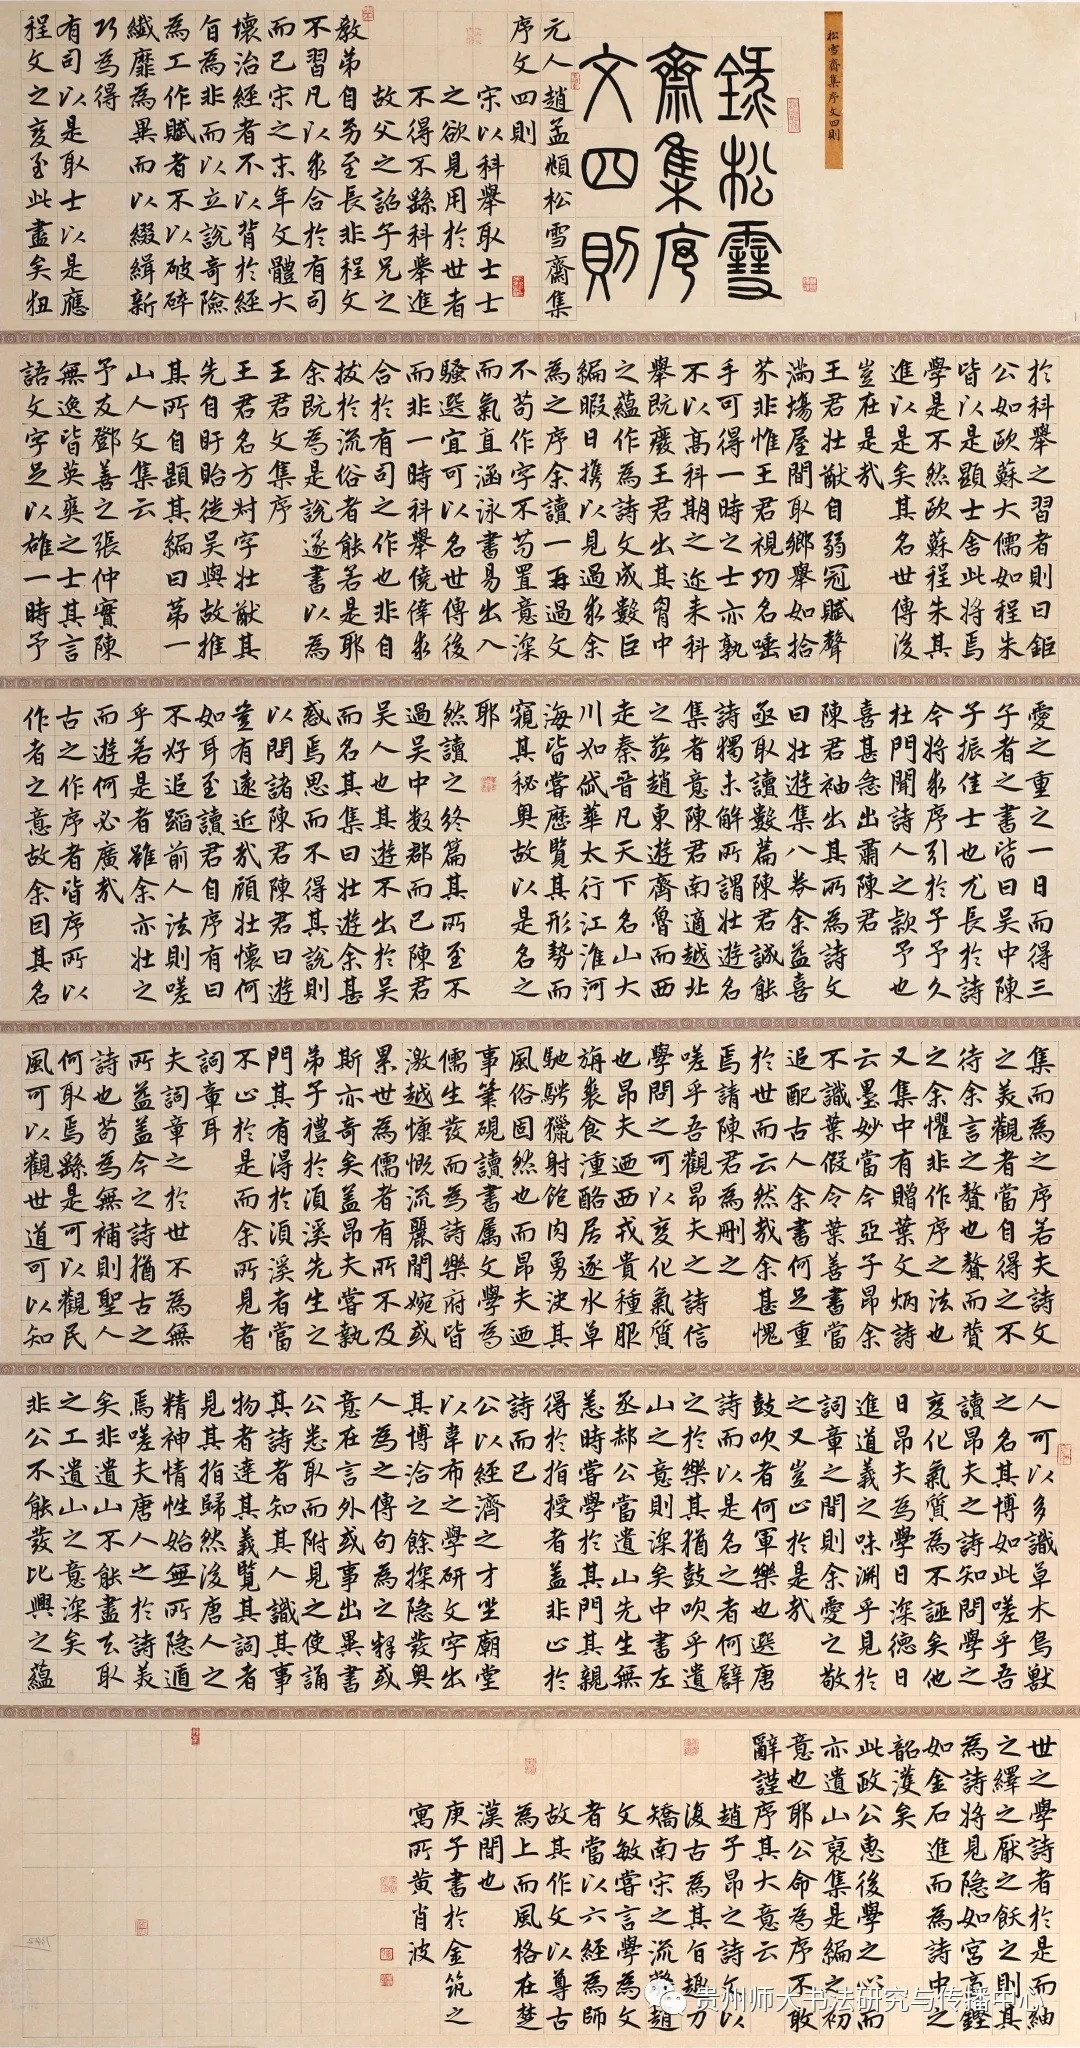 松雪齋集序文四則
錄松雪
齋集序
文四則
元人趙孟頫松雪齋集
序文四則
宋以科舉取士士
之欲見用於世者
不得不繇科舉進
故父之詔子兄之
教弟自幼至長非程文
不習凡以求合於有司
而已宋之末年文體大
壞治經者不以背於經
旨為非而以立說奇險
為工作賦者不以破碎
纖靡為異而以綴緝新
巧為得
有司以是取士以是應
程文之變至此盡矣狃
於科舉之習者則曰鉅
公如歐蘇大儒如程朱
皆以是顯士舍此將焉
學是不然歐蘇程朱其
進以是矣其名世傳後
豈在是哉
王君壯猷自弱冠賦聲
滿場屋間取鄉舉如拾
芥非惟王君視功名唾
手可得一時之士亦孰
不以高科期之近来科
舉既廢王君出其胷中
之蘊作為詩文成數巨
編暇日攜以見過求余
為之序余讀一再過文
不苟作字不苟置意深
而氣直涵泳書易出入
騷選宜可以名世傳後
而非一時科舉僥倖求
合於有司之作也非自
拔於流俗者能若是耶
余既為是說遂書以為
王君文集序
王君名方对字壯猷其
先自盱眙徙吳與故推
其所自題其編曰第一
山人文集云
予友鄧善之張仲實陳
無逸皆英爽之士其言
語文字足以雄一時予
愛之重之一日而得三
子者之書皆曰吳中陳
子振佳士也尤長於詩
今將求序引於子予久
杜門聞詩人之款予也
喜甚急出肅陳君
陳君袖出其所為詩文
曰壯遊集八券余益喜
亟取讀數篇陳君誠能
詩獨未解所謂壯遊名
集者意陳君南適越北
之燕趙東遊齊魯而西
走秦晉凡天下名山大
川如岱華太行江淮河
海皆嘗歷覽其形勢而
窺其秘奥故以是名之
耶
然讀之終篇其所至不
過吳中數郡而已陳君
吳人也其遊不出於吳
而名其集曰壯遊余甚
惑焉思而不得其說則
以問諸陳君陳君曰遊
豈有遠近哉顧壯懷何
如耳至讀君自序有曰
不好追蹈前人法則嗟
乎若是者雖余亦壯之
而遊何必廣哉
古之作序者皆序所以
作者之意故余因其名
集而為之序若夫詩文
之美觀者當自得之不
待余言之贅也贅而贊
之余懼非作序之法也
又集中有贈葉文炳詩
云墨妙當今亞子昂余
不識葉假令葉善書當
追配古人余書何足重
於世而云然哉余甚愧
焉請陳君為刪之
嗟乎吾觀昂夫之詩信
學問之可以變化氣質
也昂夫迺西戎貴種服
旃裘食湩酪居逐水草
馳騁獵射飽肉勇決其
風俗固然也而昂夫迺
事筆硯讀書屬文學為
儒生發而為詩樂府皆
激越慷慨流麗閒婉或
累世為儒者有所不及
斯亦奇矣蓋昂夫嘗執
弟子禮於湏溪先生之
門其有淂於湏溪者當
不止於是而余所見者
詞章耳
夫詞章之於世不為無
所益盖今之詩猶古之
詩也苟為無補則聖人
何取焉繇是可以觀民
風可以觀世道可以知
人可以多識草木鳥獸
之名其博如此嗟乎吾
讀昂夫之詩知問學之
變化氣質為不誣矣他
日昂夫為學日深德日
進道義之味渊乎見於
詞章之間則余愛之敬
之又豈止於是哉
鼓吹者何軍樂也選唐
詩而以是名之者何譬
之於樂其猶鼓吹乎遺
山之意則深矣中書左
丞郝公當遺山先生無
恙時嘗學於其門其親
得於指授者蓋非止於
詩而已
公以經濟之才坐廟堂
以韋布之學研文字出
其博洽之餘探隐發奥
人為之傳句為之釋或
意在言外或事出異書
公悉取而附見之使誦
其詩者知其人識其事
物者達其義覽其詞者
見其指歸然後唐人之
精神情性始無所隐遁
焉嗟夫唐人之於詩美
矣非遺山不能盡去取
之工遺山之意深矣
非公不能發比興之蘊
世之學詩者於是而紬
之繹之厭之飫之則其
為詩將見隐如宮商鏗
如金石進而為詩中之
韶濩矣
此政公惠後學之心而
亦遺山裒集是編之初
意也耶公命為序不敢
辭謹序其大意云
趙子昂之詩文以
復古為其旨趣力
矯南宋之流弊趙
文敏嘗言學為文
者當以六經為師
故其作文以尊古
為上而風格在楚
漢間也
庚子書於金筑之
寓所黃肖波
贵州师大书法研究与传播中心